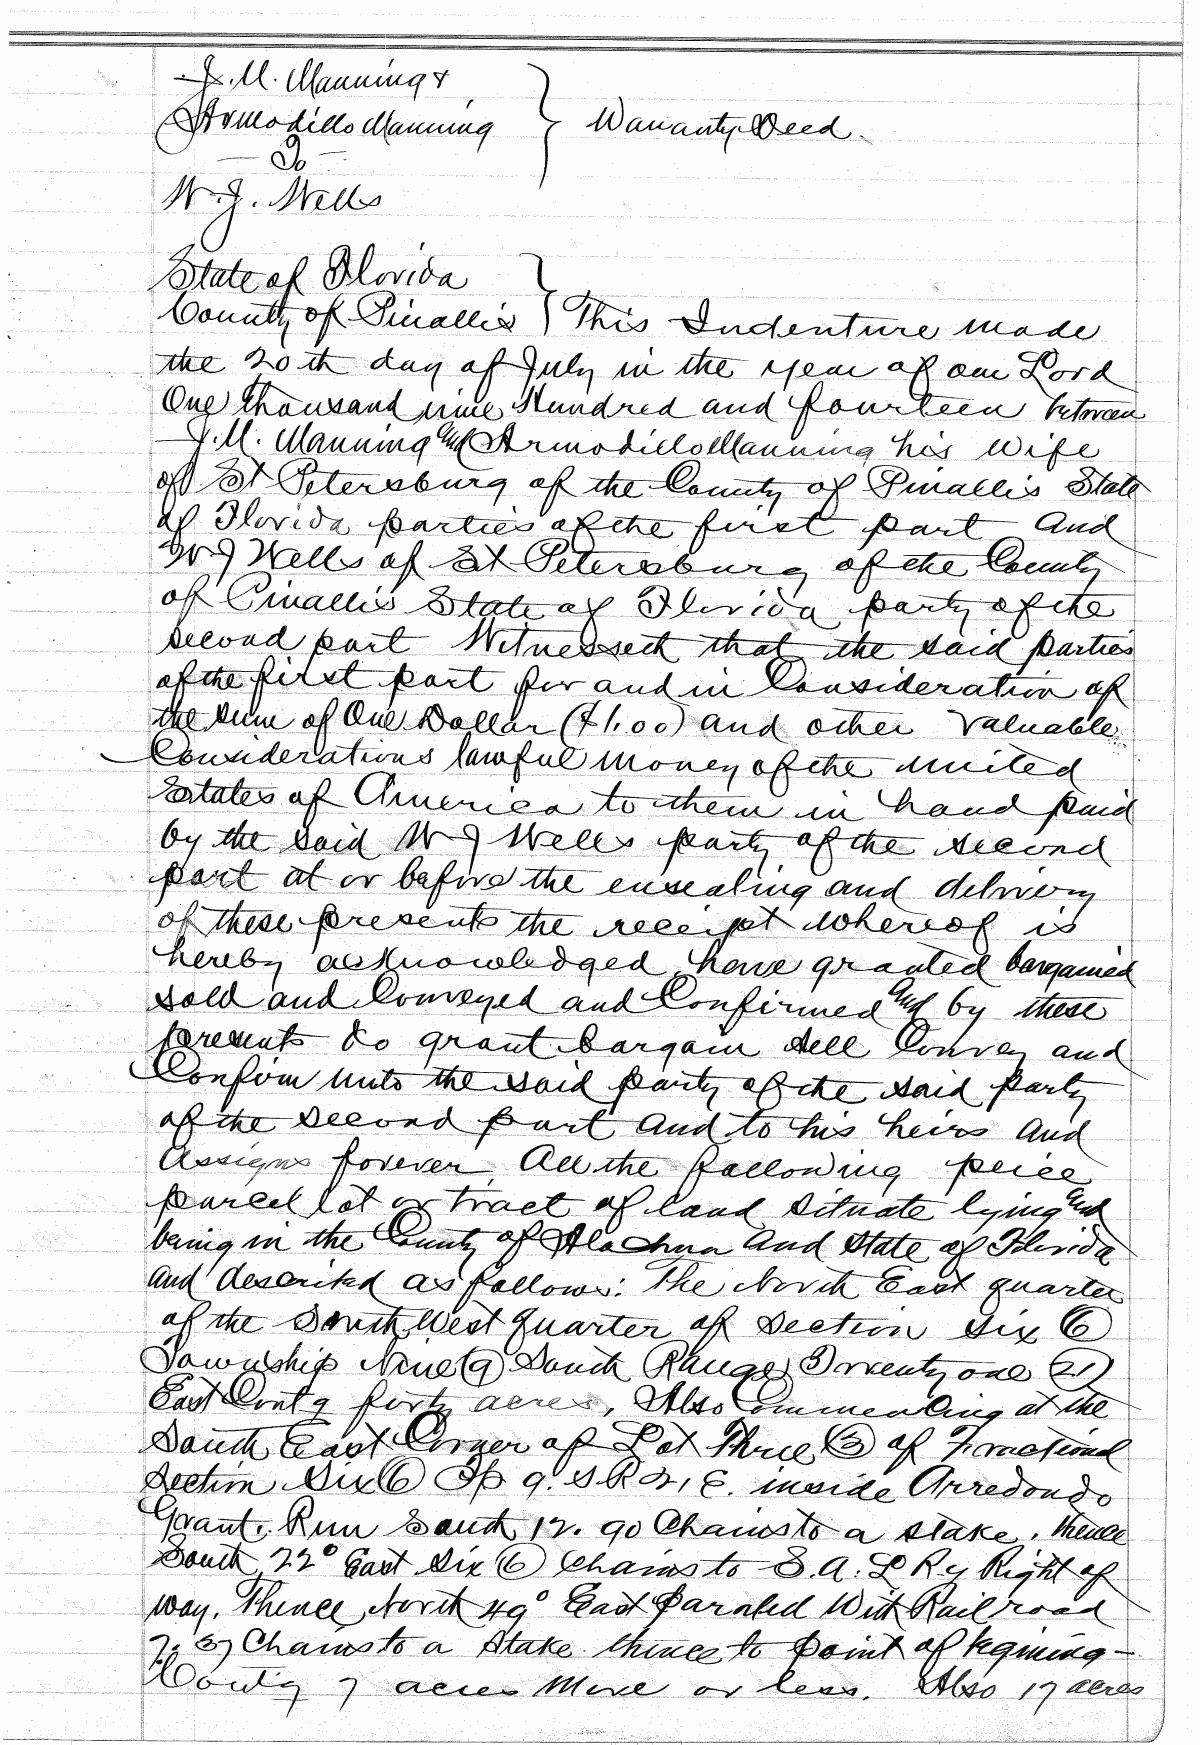 J. M. Manning &
Armodillo Manning } Warranty Deed.
— To —
W. J. Wells
State of Florida
County of Pinallis } This Indenture made
the 20th day of July in the year of our Lord
One thousand nine Hundred and fourteen between
J. M. Manning and Armodillo Manning his wife
of St Petersburg of the County of Pinallis State
of Florida parties of the first part And
W J Wells of St Petersburg of the County
of Pinallis State of Florida party of the
second part Witnesseth that the said parties
of the first part for and in Consideration of
the sum of One Dollar ($1.00) and other valuable
Considerations lawful money of the united
States of America to them in hand paid
by the said W J Wells party of the second
part at or before the ensealing and delivery
of these presents the receipt whereof is
hereby acknowledged have granted bargained
sold and Conveyed and Confirmed and by these
presents do grant bargain sell Convey and
Confirm unto the said party of the said party
of the second part and to his heirs and
assigns forever All the following peice
parcel lot or tract of land situate lying and
being in the County of Alachua and State of Florida
and described as follows: The North East quarter
of the South West quarter of Section six (6)
Township Nine (9) South Range Twenty one (21)
East Contg forty acres, Also Commencing at the
South East Corner of Lot Three (3) of Fractional
Section Six (6) Tp 9. S R 21 E. inside Arredondo
Grant. Run South 12.90 Chains to a stake, thence
South 22° East six (6) Chains to S. A. L Ry Right of
way, Thence North 49° East Paraled With Rail road
7. Chains to a stake thence to point of begining—
7 acres more or less. Also 17 acres